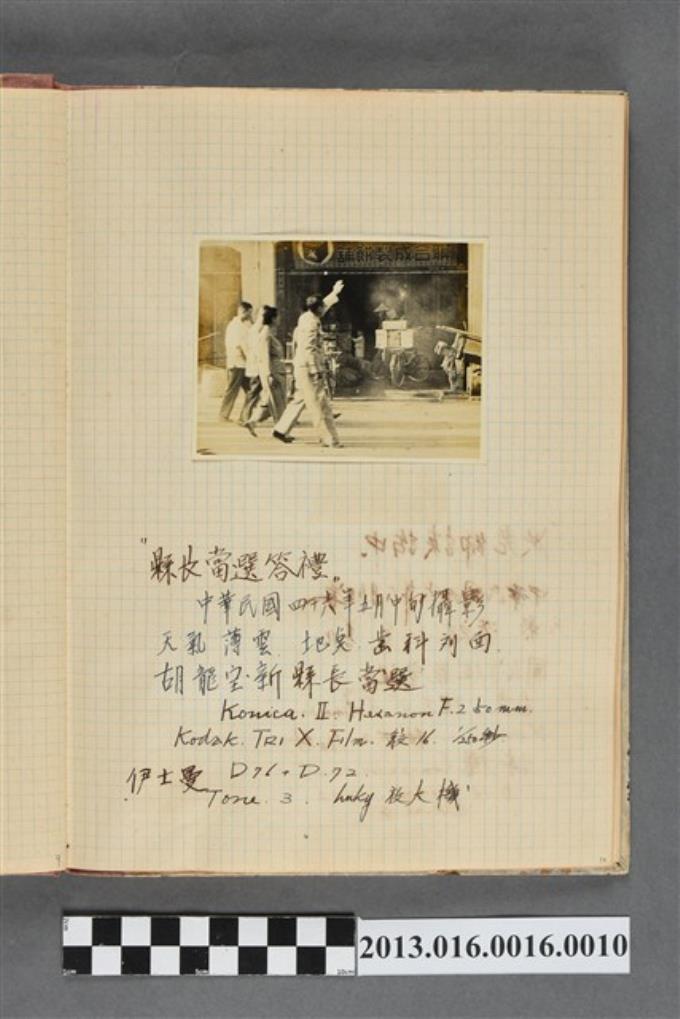 "縣長當選答禮"
中華民國四十六年五月中旬攝影
天氣 薄雲 地点 齒科列面
胡龍宝新縣長當選
Konica. II. Hexanon F.2 50mm.
Kodak. TRI X. Film. 絞16. 1/250秒
伊士曼 D76+D.72.
Tone. 3. Lucky 放大機
2013.016.0016.0010